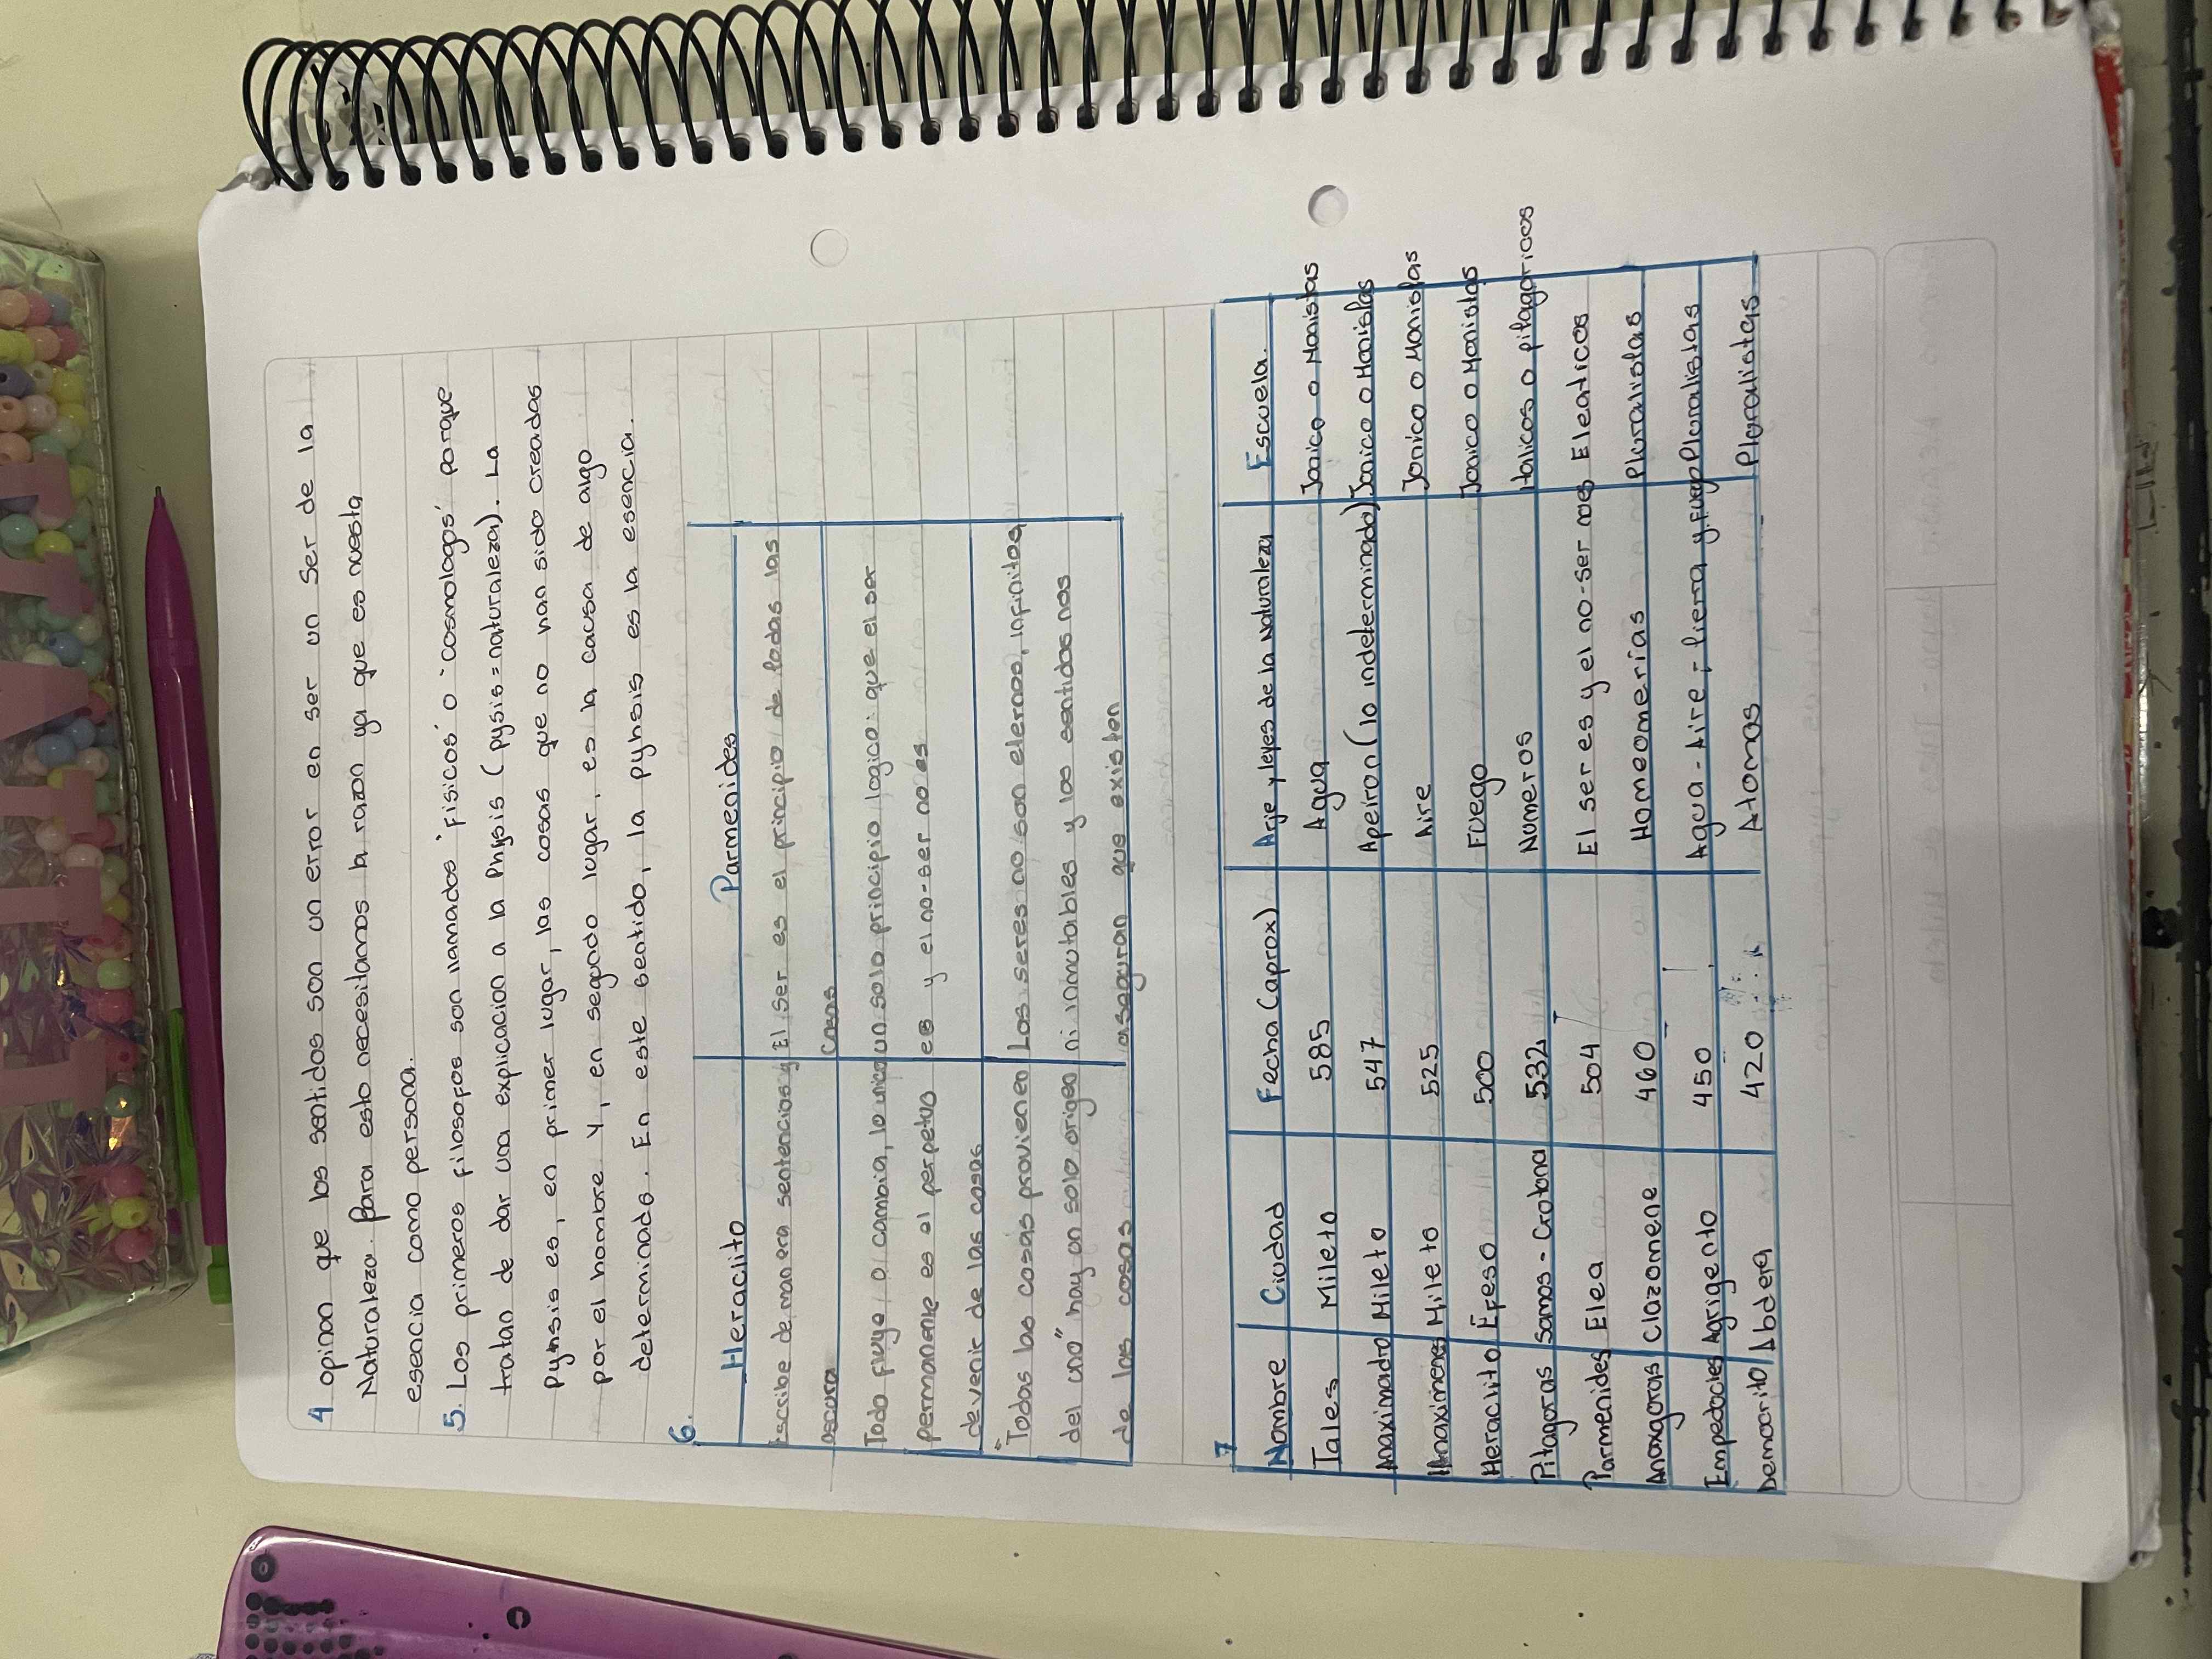 4 opinan que los sentidos son un error en ser un ser de la
Naturaleza. Para esto necesitamos la razon ya que es nuesta
esencia como persona.
5. Los primeros filosofos son llamados 'fisicos' o 'cosmologos' porque
tratan de dar una explicacion a la Physis (pysis = naturaleza). La
Pyhsis es, en primer lugar, las cosas que no han sido creadas
por el hombre y, en segundo lugar, es la causa de algo
determinado. En este sentido, la pyhsis es la esencia.
6.
Heraclito Parmenides
Escribe de manera sentencios y El ser es el principio de todas las
oscura cosas
Todo fluye o cambia, lo unico un solo principio logico: que el ser
permanente es el perpetuo es y el no-ser no es
devenir de las cosas
"Todas las cosas provienen Los seres no son eternos, infinitos
del uno" hay un solo origen ni inmutables y los sentidos nos
de las cosas aseguran que existen
7
Nombre Ciudad Fecha (aprox) Arje y leyes de la Naturaleza Escuela.
Tales Mileto 585 Agua Jonico o Monistas
Anaximadro Mileto 547 Apeiron (lo indeterminado) Jonico o Monistas
Anaximenes Mileto 525 Aire Jonico o Monistas
Heraclito Efeso 500 Fuego Jonico o Monistas
Pitagoras Samos - Crotona 532 Numeros Italicos o pitagoricos
Parmenides Elea 504 El ser es y el no-ser no es Eleaticos
Anaxagoras Clazomene 460 Homeomerías Pluralistas
Empedocles Agrigento 450 Agua - Aire - tierra y fuego Pluralistas
Democrito Abdera 420 Atomos Pluralistas